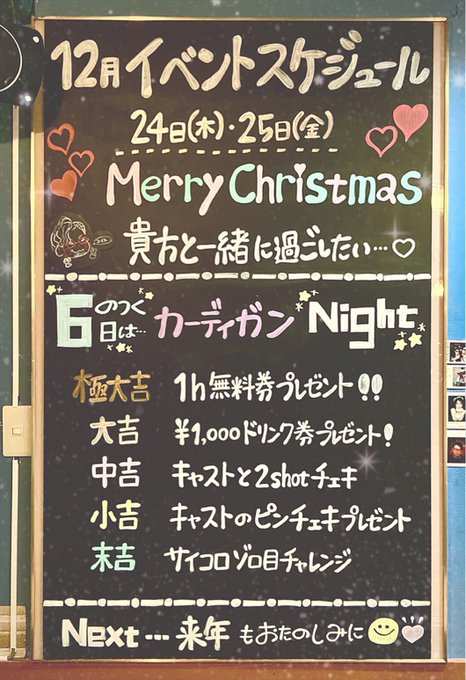 12月イベントスケジュール
24日(木)・25日(金)
Merry Christmas
貴方と一緒に過ごしたい…♡
6のつく日は… カーディガン Night
極大吉 1h無料券プレゼント!!
大吉 ¥1,000ドリンク券プレゼント!
中吉 キャストと2shotチェキ
小吉 キャストのピンチェキプレゼント
末吉 サイコロゾロ目チャレンジ
Next… 来年もおたのしみに